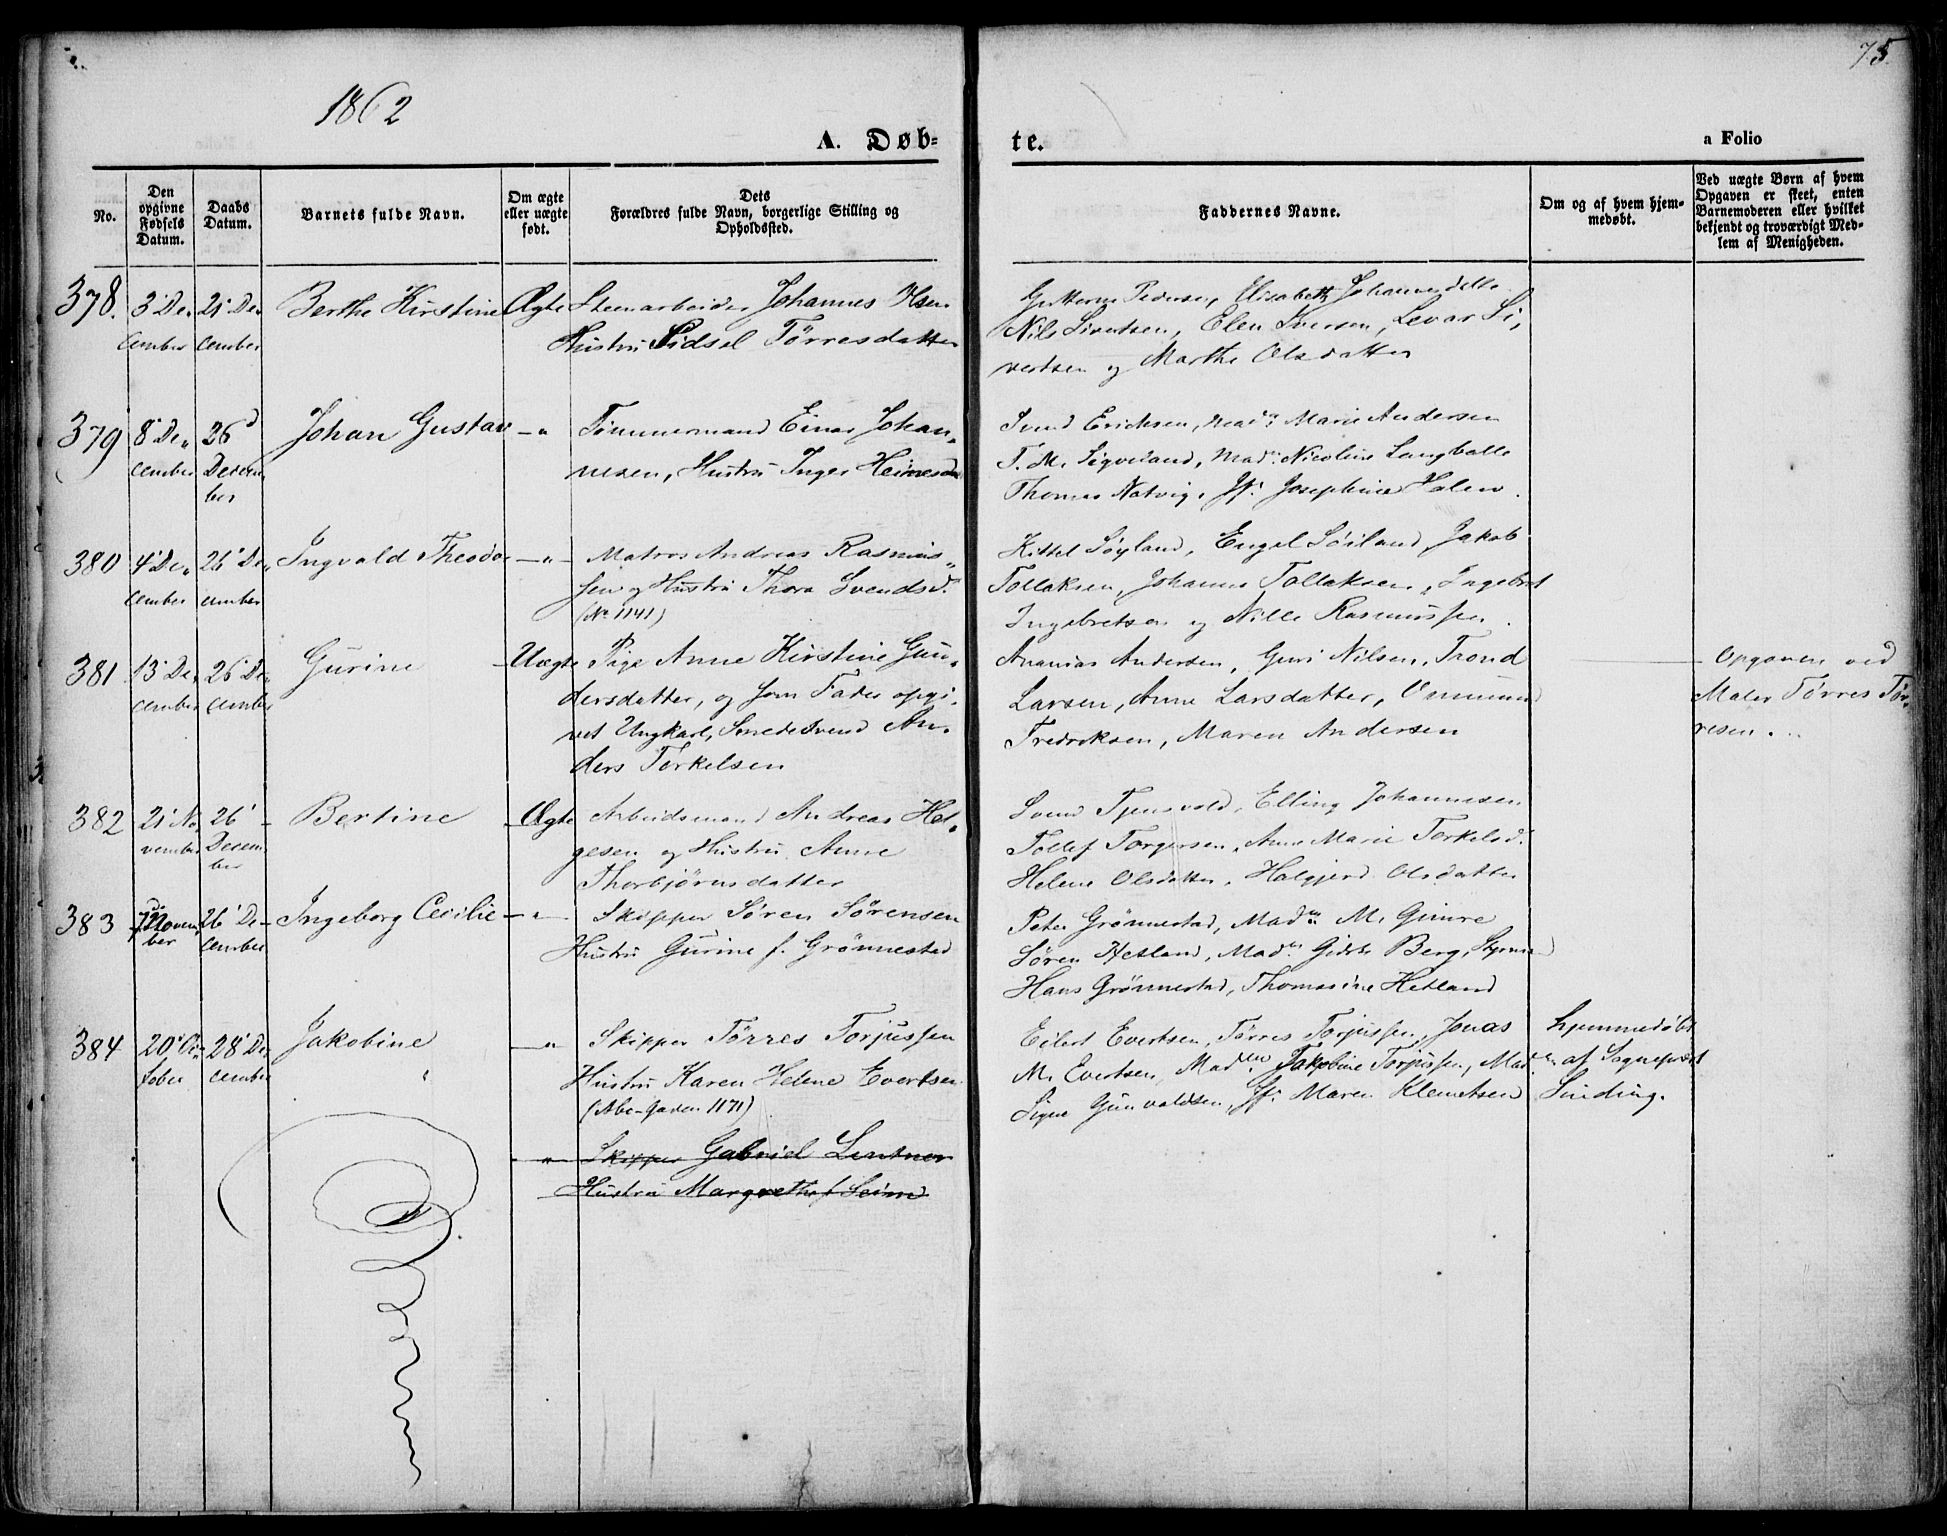 75.
1862
A. Døb-
te.
a Folio
No.
Den opgivne Fødsels Datum.
Daabs Datum.
Barnets fulde Navn.
Om ægte eller uægte født.
Dets
Forældres fulde Navn, borgerlige Stilling og
Opholdssted.
Faddernes Navne.
Om og af hvem hjem-
medøbt.
Ved uægte Børn af hvem
Opgaven er skeet, enten
Barnemoderen eller hvilket
bekjendt og troværdigt Med-
lem af Menigheden.
378. 3' De- 21' De- Berthe Kirstine Ægte Steenarbeider Johannes
cember cember Hustru Sidsel Tørresdatter
Pedersen, Elisabeth
Nils Sivertsen, Elen Iversen, Levar Si-
vertsen og Marthe Olsdatter
379 8' De- 26' Johan Gustav —"— Tømmermand Einar Johan-
cember Decem- nesen, Hustru Inger
ber
Svend Ericksen, Mad. Marie Andersen
T. M. Sigveland, Mad. Nicoline Langballe
Thomas Natvig, Jf. Josephine Halen.
380 4' De- 26' De- Ingvald Theodor —"— Matros Andreas Rasmus-
cember cember sen og Hustru Thora Svendsd.
(No 1141)
Kittel Søyland, Engel Søiland, Jakob
Tollaksen, Johannes Tollaksen, Ingebret
Ingebretsen og Nille Rasmussen.
381 13' De- 26' De- Gurine Uægte Pige Anne Kirstine Gun-
cember cember dersdatter, og som Fader opgi-
vet Ungkarl, Smedesvend An-
ders Torkelsen
Ananias Andersen, Guri Nilsen, Trond
Larsen, Anne Larsdatter, Ommund
Fredriksen, Maren Andersen
Opgaven ved
Maler Tørres Tør-
resen.
382 21' No- 26' Bertine Ægte Arbeidsmand Andreas Hel-
vember Decem- gesen og Hustru Anne
ber Thorbjørnsdatter
Svend Tjensvold, Elling Johannesen
Tollef Torgersen, Anne Marie Torkelsd.
Helene Olsdatter, Halgjerd Olsdatter
383 7de Novem- 26' De- Ingeborg Cecilie —"— Skipper Søren Sørensen
ber cember Hustru Gurine f. Grønnestad
Peter Grønnestad, Mad. M. Gimre
Søren Hetland, Mad. Berg, Styrmd
Hans Grønnestad, Thomasine Hetland
384 20' Oc- 28' De- Jakobine —"— Skipper Tørres Torjussen
tober cember Hustru Karen Helene Evertsen
(Abc-Gaden 1171)
Eilert Evertsen, Tørres Torjussen, Jonas
M. Evertsen, Mad. Jakobine Torjussen, Mad.
Signe Gunvaldsen, Jf. Maren Klemetsen
hjemmedøbt
af Sognepræst
Sinding.
—"— Skipper Gabriel Lintner
Hustru Margrethe f. Seime